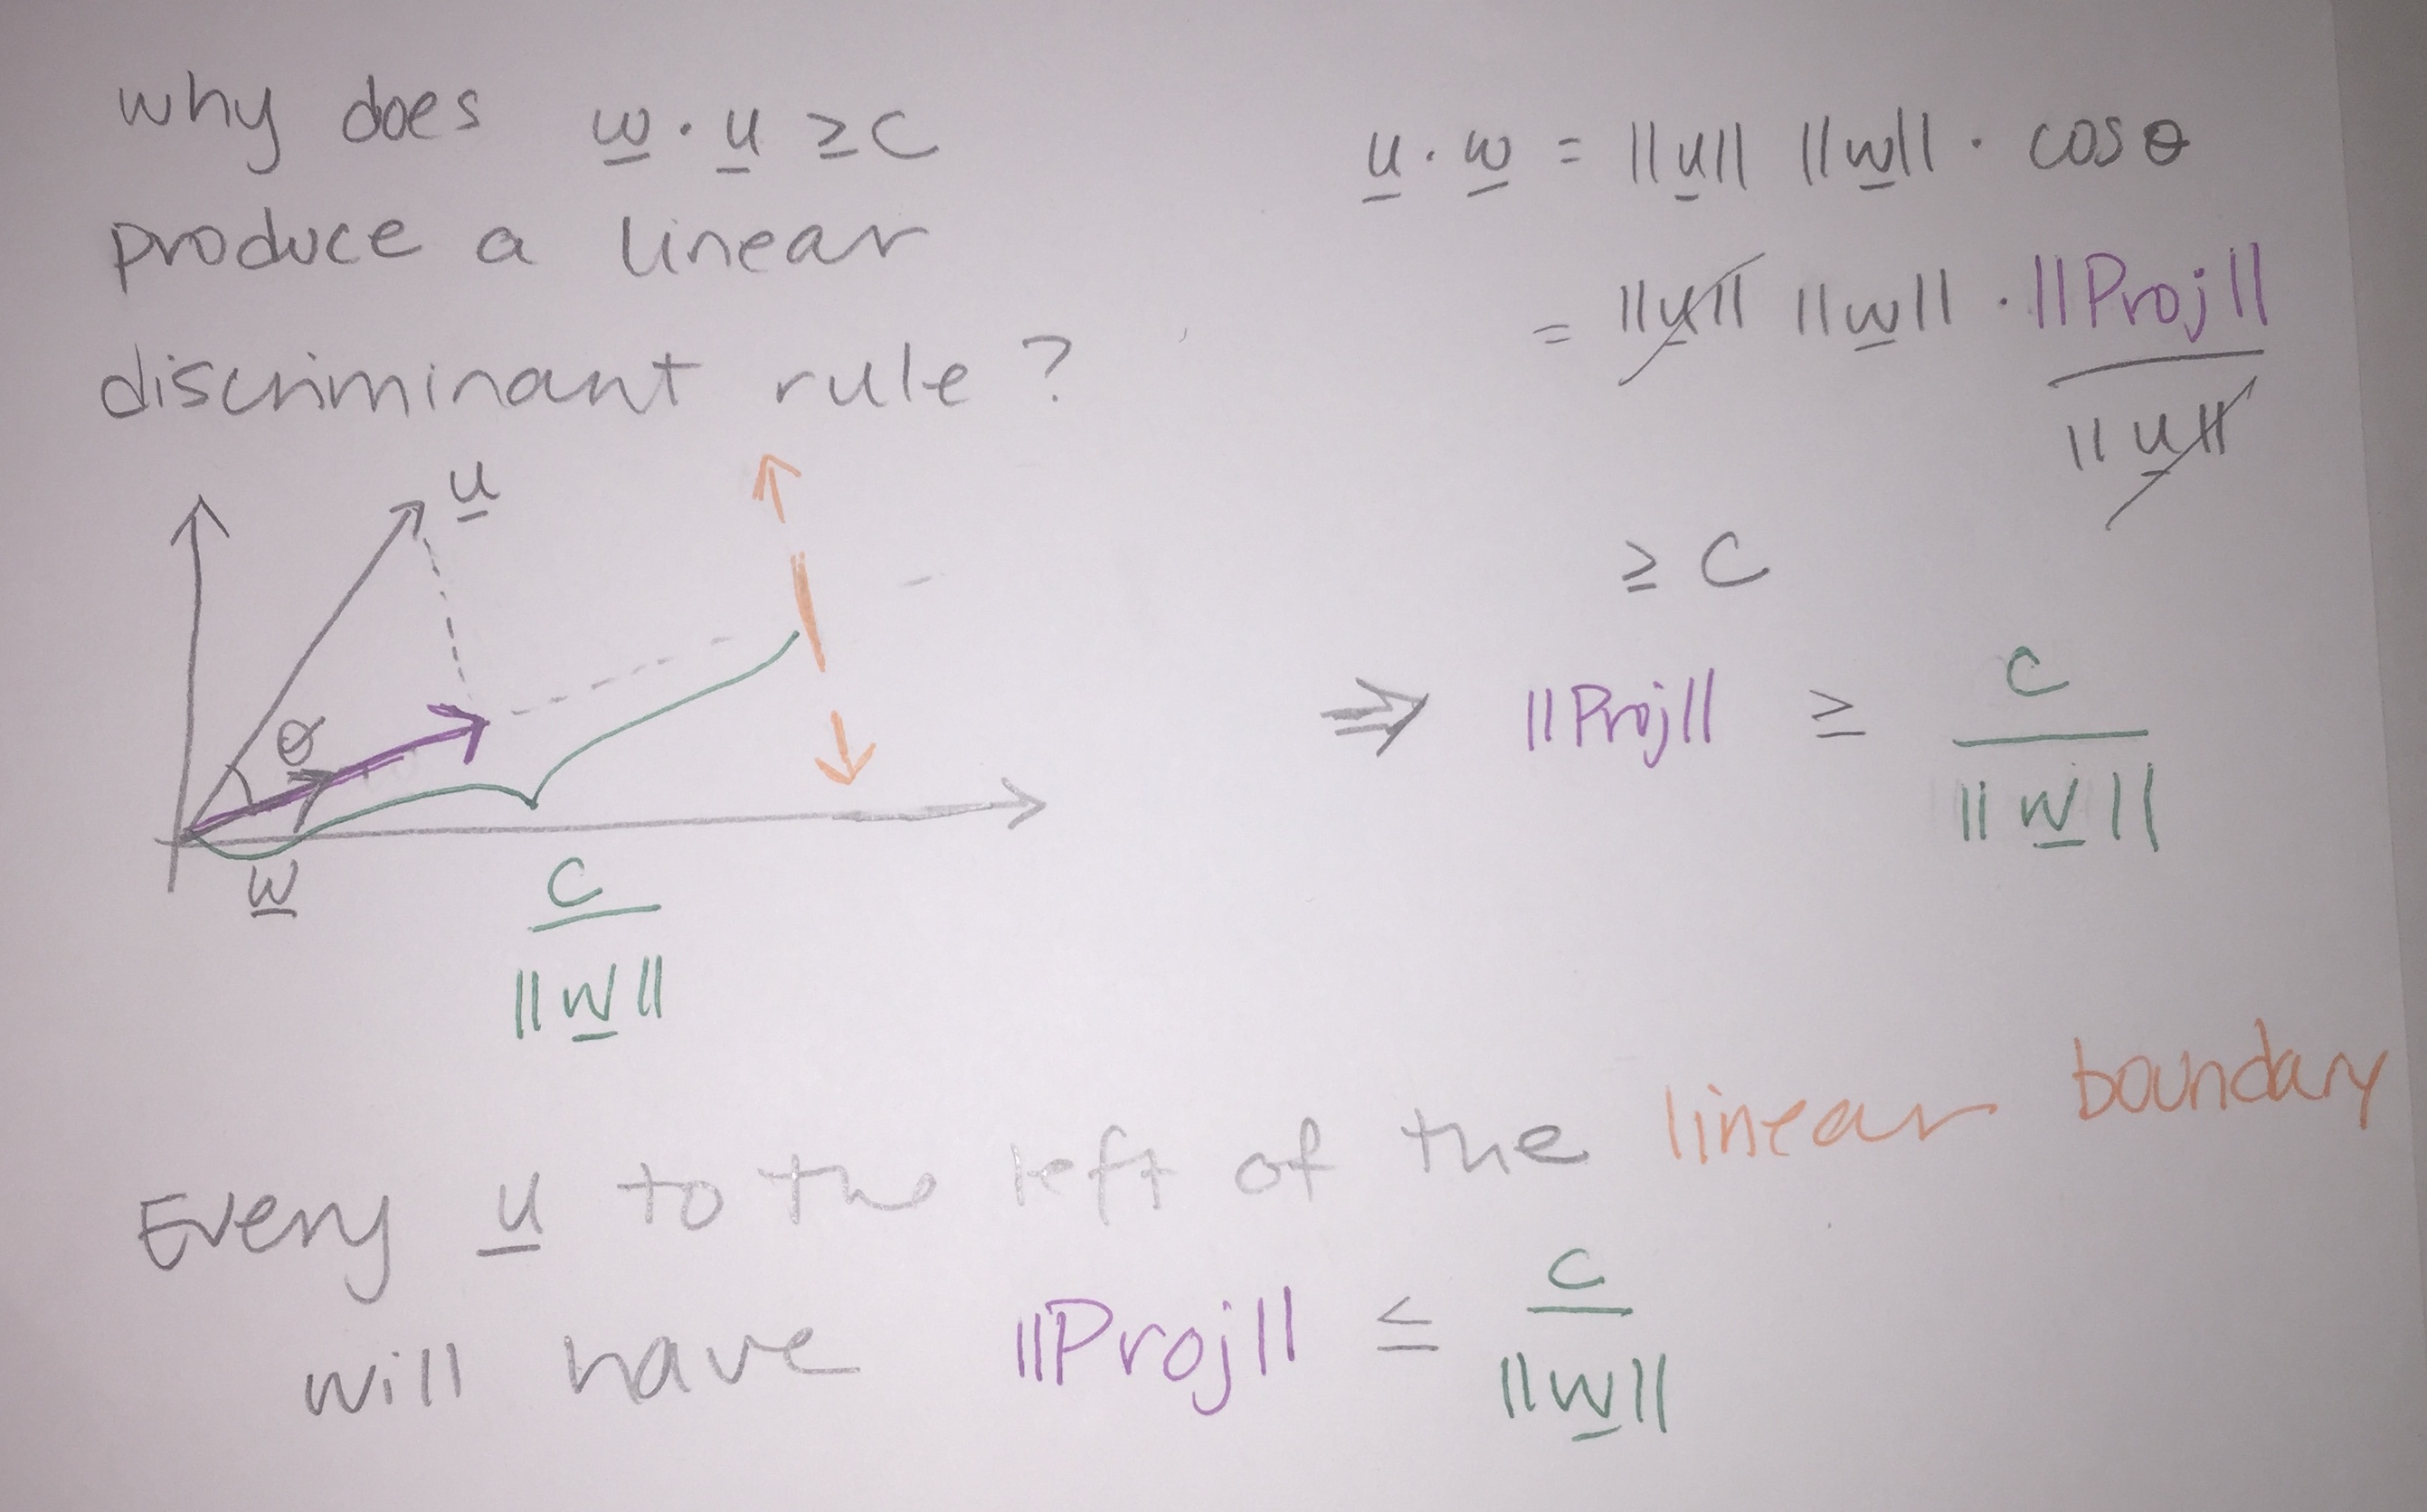 why does w · u ≥ C
produce a linear
discriminant rule?
u · w = ||u|| ||w|| · cos θ
= ||u|| ||w|| · ||Proj||
||u||
≥ C
⇒ ||Proj|| ≥ C
||w||
u
θ
w
C
||w||
Every u to the left of the linear boundary
will have ||Proj|| ≤ C
||w||